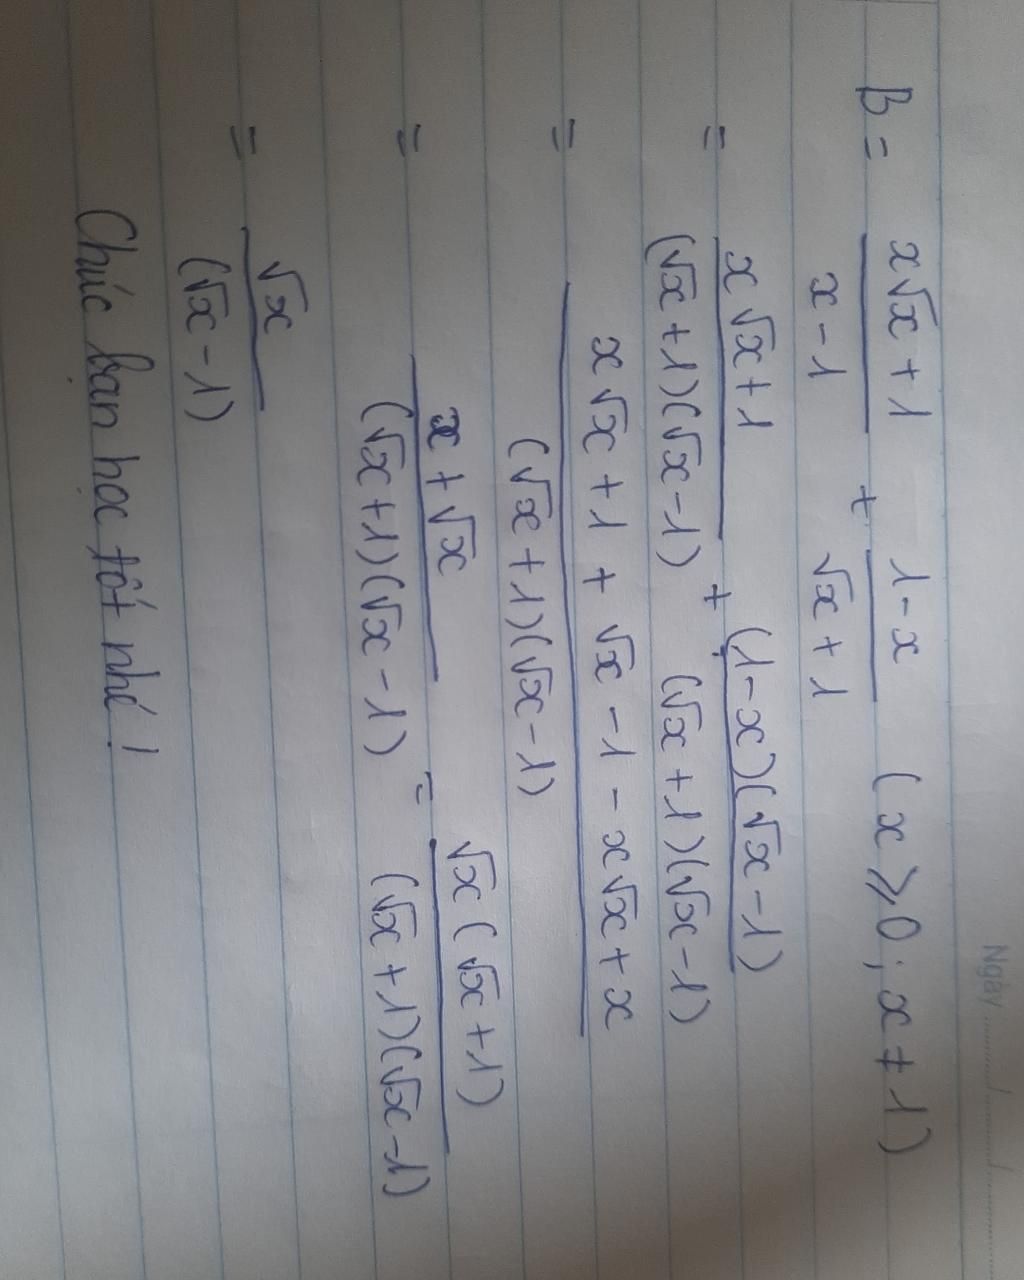 Ngày ......../......../........
B = (x√x + 1)/(x - 1) + (1 - x)/(√x + 1) (x ⩾ 0; x ≠ 1)
= (x√x + 1)/((√x + 1)(√x - 1)) + ((1 - x)(√x - 1))/((√x + 1)(√x - 1))
= (x√x + 1 + √x - 1 - x√x + x)/((√x + 1)(√x - 1))
= (x + √x)/((√x + 1)(√x - 1)) = (√x(√x + 1))/((√x + 1)(√x - 1))
= √x/(√x - 1)
Chúc bạn học tốt nhé!